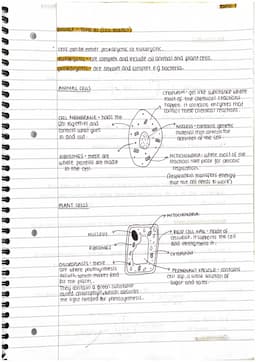 cells can be either prokaryotic or eukaryotic.
eukaryotes are complex and include all animal and plant cells.
prokaryotes are smaller and simpler e.g. bacteria.
ANIMAL CELLS
CYTOPLASM - gel like substance where
most of the chemical reactions
happen. It contains enzymes that
control these chemical reactions.
CELL MEMBRANE - holds the
cell together and
controls what goes
in and out
NUCLEUS - contains genetic
material that controls the
activities of the cell.
RIBOSOMES - these are
where proteins are made
in the cell.
MITOCHONDRIA - where most of the
reactions take place for aerobic
respiration.
(respiration transfers energy
that the cell needs to work)
PLANT CELLS
MITOCHONDRIA
NUCLEUS
RIGID CELL WALL - made of
cellulose. It supports the cell
and strengthens it.
RIBOSOMES
CYTOPLASM
CHLOROPLASTS - these
are where photosynthesis
occurs, which makes food
for the plant.
They contain a green substance
called chlorophyll, which absorbs
the light needed for photosynthesis.
PERMANENT VACUOLE - contains
cell sap, a weak solution of
sugar and salts.